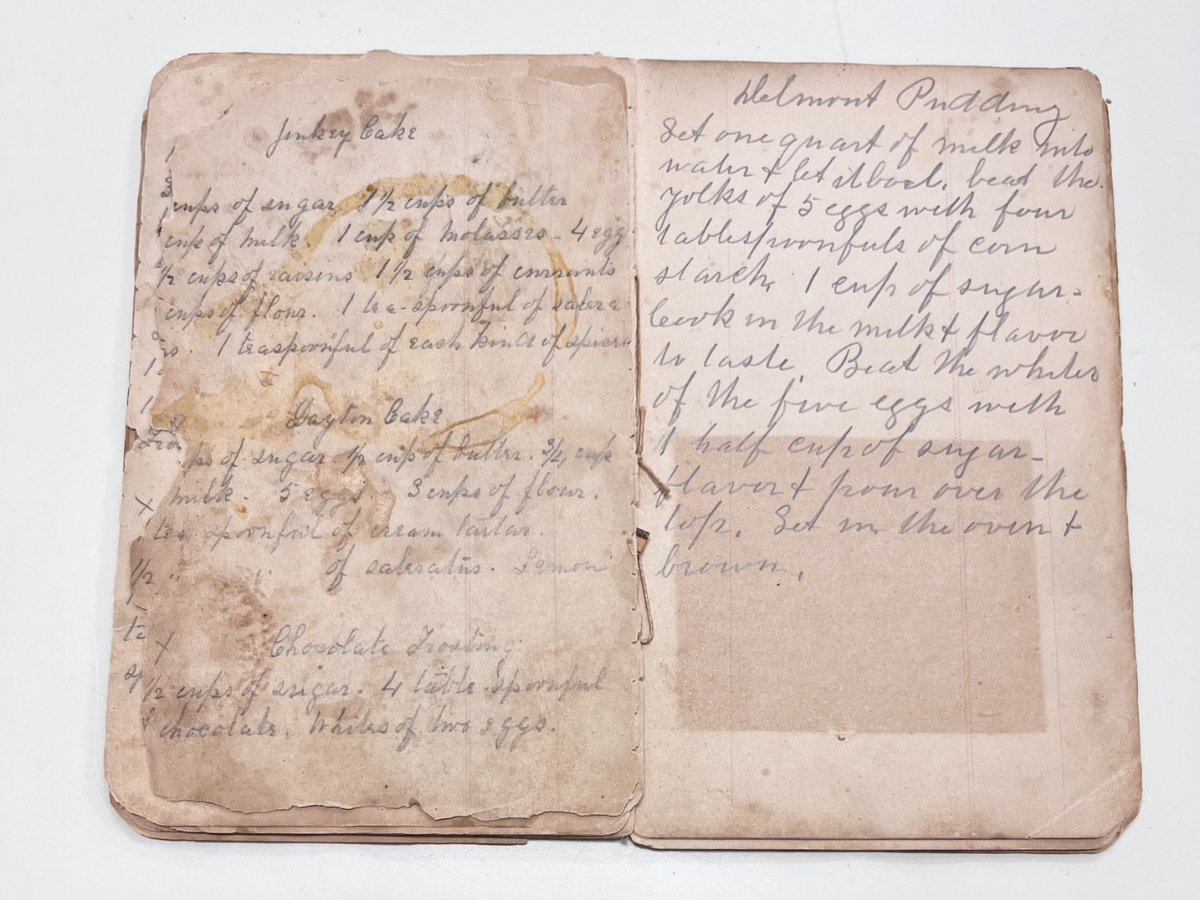 Jenkey Cake
cups of sugar 1 1/2 cups of butter
cup of milk. 1 cup of molasses - 4 egg
1/2 cups of raisins 1 1/2 cups of currants
cups of flour. 1 tea-spoonful of salera
1 teaspoonful of each kind of spices
Dayton Cake.
ps of sugar 1/2 cup of butter. 3/4 cup
x milk. 5 eggs. 3 cups of flour.
tea spoonful of cream tartar.
1/2 " " of saleratus. Lemon
x Chocolate Frosting.
1/2 cups of sugar. 4 table-spoonful
chocolate. Whites of two eggs.
Delmont Pudding
Set one quart of milk into
water & let it boil. beat the
yolks of 5 eggs with four
tablespoonfuls of corn
starch, 1 cup of sugar-
Cook in the milk & flavor
to taste. Beat the whites
of the five eggs with
1 half cup of sugar-
flavor & pour over the
top. Set in the oven &
brown.